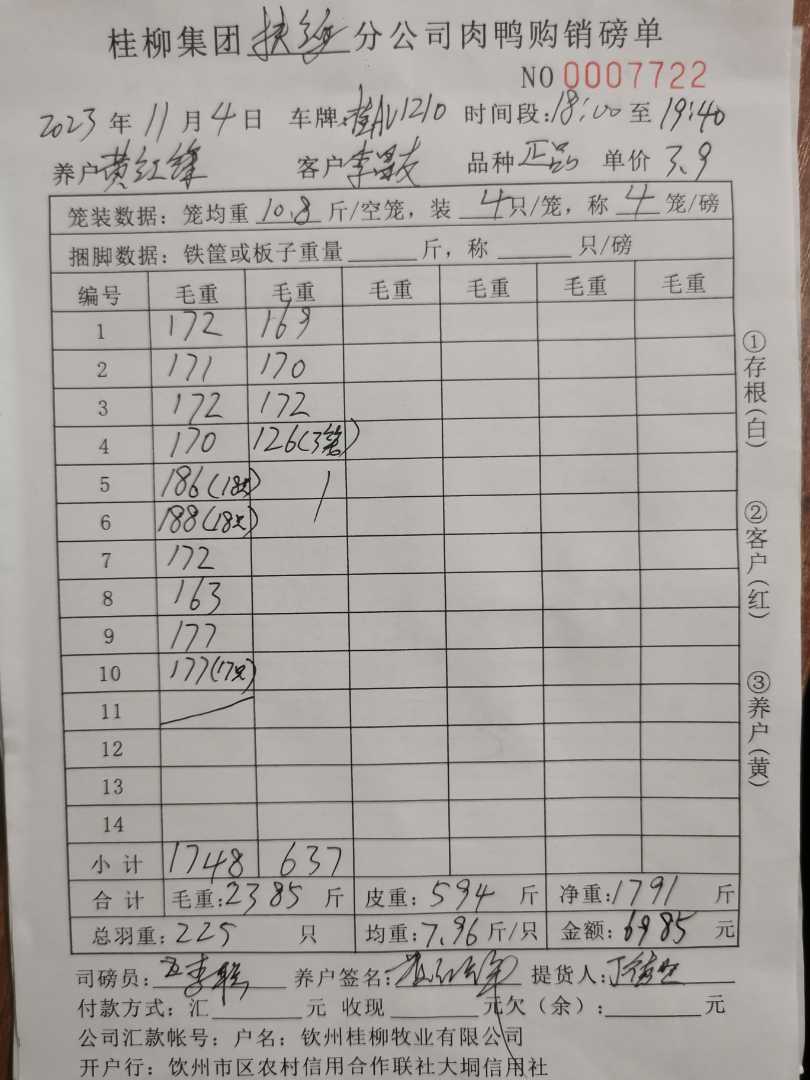 桂柳集团扶绥分公司肉鸭购销磅单
NO 0007722
2023年11月4日 车牌:桂AV1210 时间段:18:00至19:40
养户黄红锋 客户李昌友 品种正品 单价3.9
笼装数据：笼均重10.8斤/空笼，装4只/笼，称4笼/磅
捆脚数据：铁筐或板子重量______斤，称______只/磅
编号 毛重 毛重 毛重 毛重 毛重 毛重
1 172 169
2 171 170
3 172 172
4 170 126(3笼)
5 186(18只) /
6 188(18只)
7 172
8 163
9 177
10 177(17只)
11
12
13
14
小计 1748 637
合计 毛重:2385斤 皮重:594斤 净重:1791斤
总羽重:225只 均重:7.96斤/只 金额:6985元
司磅员: 养户签名: 提货人:
付款方式:汇______元 收现______元欠(余):______元
公司汇款帐号：户名：钦州桂柳牧业有限公司
开户行：钦州市区农村信用合作联社大垌信用社
①存根(白)
②客户(红)
③养户(黄)